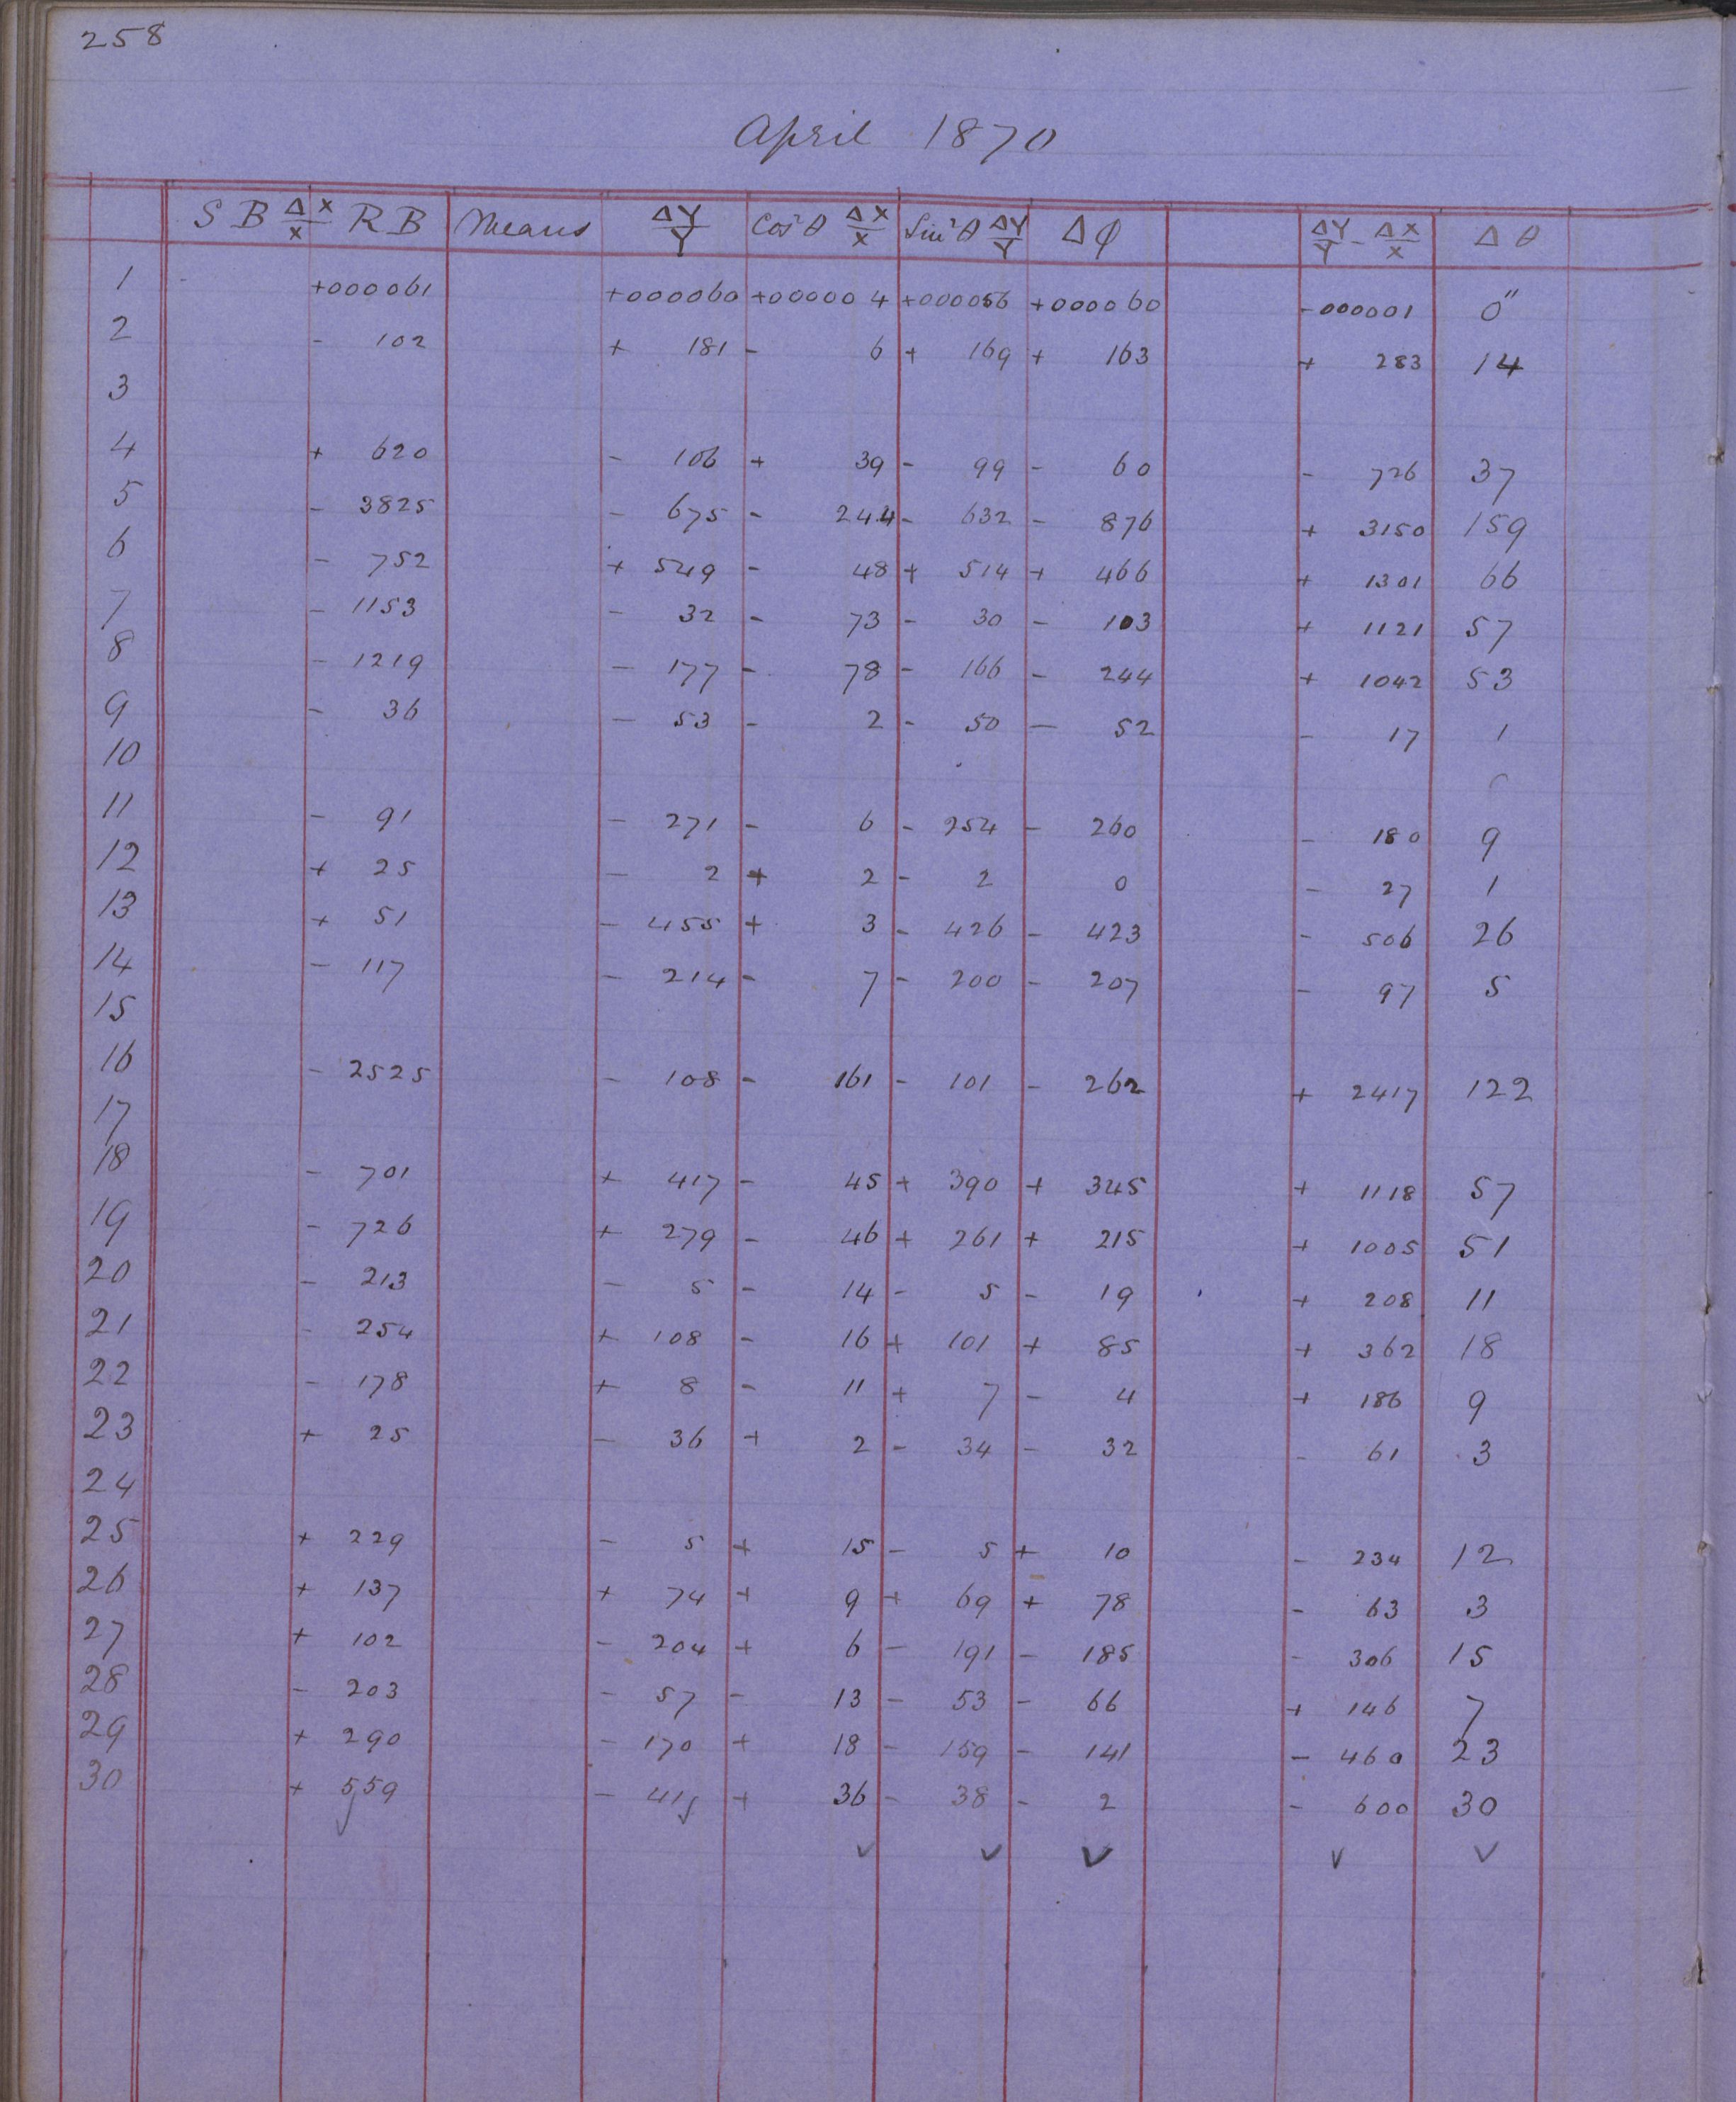 258
April 1870
S B ΔX/X R B Means ΔY/Y Cos²θ ΔX/X Sin²θ ΔY/Y Δφ ΔY/Y - ΔX/X Δθ
1 +000061 +000060 +000004 +000056 +000060 -000001 0"
2 - 102 + 181 - 6 + 169 + 163 + 283 14
3
4 + 620 - 106 + 39 - 99 - 60 - 726 37
5 - 3825 - 675 - 244 - 632 - 876 + 3150 159
6 - 752 + 549 - 48 + 514 + 466 + 1301 66
7 - 1153 - 32 - 73 - 30 - 103 + 1121 57
8 - 1219 - 177 - 78 - 166 - 244 + 1042 53
9 - 36 - 53 - 2 - 50 - 52 - 17 1
10
11 - 91 - 271 - 6 - 254 - 260 - 180 9
12 + 25 - 2 + 2 - 2 0 - 27 1
13 + 51 - 455 + 3 - 426 - 423 - 506 26
14 - 117 - 214 - 7 - 200 - 207 - 97 5
15
16 - 2525 - 108 - 161 - 101 - 262 + 2417 122
17
18 - 701 + 417 - 45 + 390 + 345 + 1118 57
19 - 726 + 279 - 46 + 261 + 215 + 1005 51
20 - 213 - 5 - 14 - 5 - 19 + 208 11
21 - 254 + 108 - 16 + 101 + 85 + 362 18
22 - 178 + 8 - 11 + 7 - 4 + 186 9
23 + 25 - 36 + 2 - 34 - 32 - 61 3
24
25 + 229 - 5 + 15 - 5 + 10 - 234 12
26 + 137 + 74 + 9 + 69 + 78 - 63 3
27 + 102 - 204 + 6 - 191 - 185 - 306 15
28 - 203 - 57 - 13 - 53 - 66 + 146 7
29 + 290 - 170 + 18 - 159 - 141 - 460 23
30 + 559 - 41 + 36 - 38 - 2 - 600 30
✓ ✓ ✓ ✓ ✓